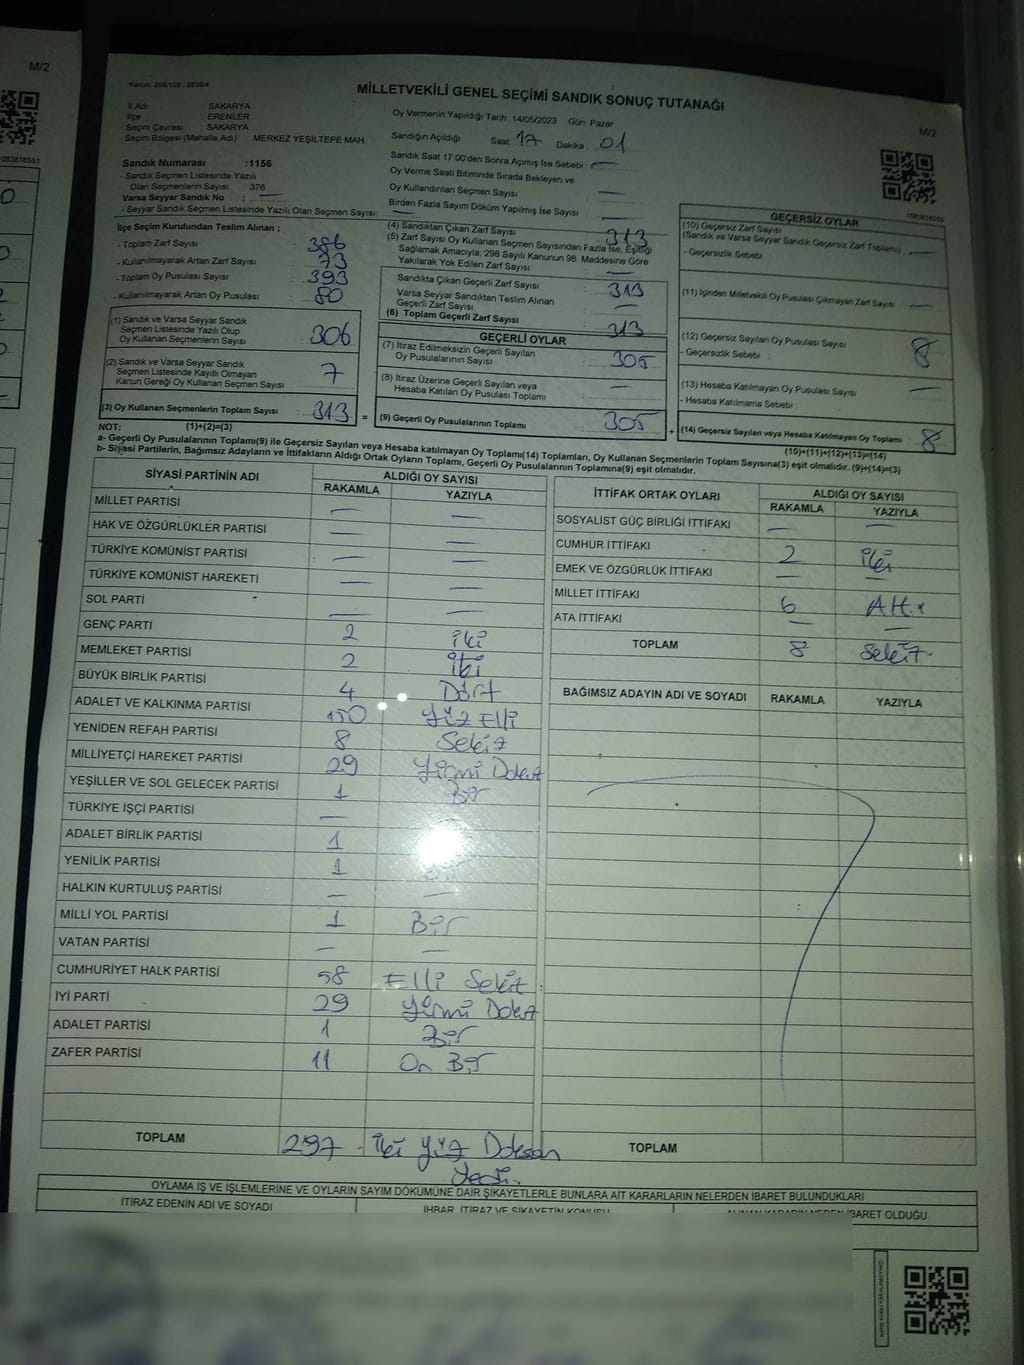 M/2
083818551
Kanun: 298/105 ; 2839/4
MİLLETVEKİLİ GENEL SEÇİMİ SANDIK SONUÇ TUTANAĞI
M/2
İl Adı : SAKARYA
İlçe : ERENLER
Seçim Çevresi : SAKARYA
Seçim Bölgesi (Mahalle Adı) : MERKEZ YEŞİLTEPE MAH.
Sandık Numarası :1156
- Sandık Seçmen Listesinde Yazılı
Olan Seçmenlerin Sayısı : 376
Varsa Seyyar Sandık No : —
- Seyyar Sandık Seçmen Listesinde Yazılı Olan Seçmen Sayısı: —
Oy Vermenin Yapıldığı Tarih :14/05/2023 Gün: Pazar
Sandığın Açıldığı Saat: 17 Dakika : 01
Sandık Saat 17:00'den Sonra Açımış İse Sebebi : —
Oy Verme Saati Bitiminde Sırada Bekleyen ve
Oy Kullandırılan Seçmen Sayısı : —
Birden Fazla Sayım Döküm Yapılmış İse Sayısı : —
İlçe Seçim Kurulundan Teslim Alınan ;
- Toplam Zarf Sayısı : 386
- Kullanılmayarak Artan Zarf Sayısı : 73
- Toplam Oy Pusulası Sayısı : 393
- Kullanılmayarak Artan Oy Pusulası : 80
(1) Sandık ve Varsa Seyyar Sandık
Seçmen Listesinde Yazılı Olup
Oy Kullanan Seçmenlerin Sayısı : 306
(2) Sandık ve Varsa Seyyar Sandık
Seçmen Listesinde Kayıtlı Olmayan
Kanun Gereği Oy Kullanan Seçmen Sayısı : 7
(3) Oy Kullanan Seçmenlerin Toplam Sayısı : 313 =
(4) Sandıktan Çıkan Zarf Sayısı : 313
(5) Zarf Sayısı Oy Kullanan Seçmen Sayısından Fazla İse, Eşitliği
Sağlamak Amacıyla; 298 Sayılı Kanunun 98. Maddesine Göre
Yakılarak Yok Edilen Zarf Sayısı : —
Sandıkta Çıkan Geçerli Zarf Sayısı : 313
Varsa Seyyar Sandıktan Teslim Alınan
Geçerli Zarf Sayısı : —
(6) Toplam Geçerli Zarf Sayısı : 313
GEÇERLİ OYLAR
(7) İtiraz Edilmeksizin Geçerli Sayılan
Oy Pusulalarının Sayısı : 305
(8) İtiraz Üzerine Geçerli Sayılan veya
Hesaba Katılan Oy Pusulası Toplamı : —
(9) Geçerli Oy Pusulalarının Toplamı : 305 +
GEÇERSİZ OYLAR
(10) Geçersiz Zarf Sayısı
(Sandık ve Varsa Seyyar Sandık Geçersiz Zarf Toplamı) : —
- Geçersizlik Sebebi :
(11) İçinden Milletvekili Oy Pusulası Çıkmayan Zarf Sayısı : —
(12) Geçersiz Sayılan Oy Pusulası Sayısı : 8
- Geçersizlik Sebebi :
(13) Hesaba Katılmayan Oy Pusulası Sayısı : —
- Hesaba Katılmama Sebebi :
(14) Geçersiz Sayılan veya Hesaba Katılmayan Oy Toplamı : 8
NOT: (1)+(2)=(3)
(10)+(11)+(12)+(13)=(14)
a- Geçerli Oy Pusulalarının Toplamı(9) ile Geçersiz Sayılan veya Hesaba katılmayan Oy Toplamı(14) Toplamları, Oy Kullanan Seçmenlerin Toplam Sayısına(3) eşit olmalıdır. (9)+(14)=(3)
b- Siyasi Partilerin, Bağımsız Adayların ve İttifakların Aldığı Ortak Oyların Toplamı, Geçerli Oy Pusulalarının Toplamına(9) eşit olmalıdır.
SİYASİ PARTİNİN ADI ALDIĞI OY SAYISI
RAKAMLA YAZIYLA
MİLLET PARTİSİ — —
HAK VE ÖZGÜRLÜKLER PARTİSİ — —
TÜRKİYE KOMÜNİST PARTİSİ — —
TÜRKİYE KOMÜNİST HAREKETİ — —
SOL PARTİ — —
GENÇ PARTİ 2 iki
MEMLEKET PARTİSİ 2 iki
BÜYÜK BİRLİK PARTİSİ 4 Dört
ADALET VE KALKINMA PARTİSİ 150 Yüz Elli
YENİDEN REFAH PARTİSİ 8 Sekiz
MİLLİYETÇİ HAREKET PARTİSİ 29 Yirmi Dokuz
YEŞİLLER VE SOL GELECEK PARTİSİ 1 Bir
TÜRKİYE İŞÇİ PARTİSİ —
ADALET BİRLİK PARTİSİ 1
YENİLİK PARTİSİ 1 Bir
HALKIN KURTULUŞ PARTİSİ — —
MİLLİ YOL PARTİSİ 1 Bir
VATAN PARTİSİ — —
CUMHURİYET HALK PARTİSİ 58 Elli Sekiz
İYİ PARTİ 29 Yirmi Dokuz
ADALET PARTİSİ 1 Bir
ZAFER PARTİSİ 11 On Bir
TOPLAM 297 iki Yüz Doksan
Yedi.
İTTİFAK ORTAK OYLARI ALDIĞI OY SAYISI
RAKAMLA YAZIYLA
SOSYALİST GÜÇ BİRLİĞİ İTTİFAKI — —
CUMHUR İTTİFAKI 2 iki
EMEK VE ÖZGÜRLÜK İTTİFAKI — —
MİLLET İTTİFAKI 6 Altı
ATA İTTİFAKI — —
TOPLAM 8 Sekiz
BAĞIMSIZ ADAYIN ADI VE SOYADI RAKAMLA YAZIYLA
TOPLAM
OYLAMA İŞ VE İŞLEMLERİNE VE OYLARIN SAYIM DÖKÜMÜNE DAİR ŞİKAYETLERLE BUNLARA AİT KARARLARIN NELERDEN İBARET BULUNDUKLARI
İTİRAZ EDENİN ADI VE SOYADI İHBAR, İTİRAZ VE ŞİKAYETİN KONUSU ALINAN KARARIN NEDEN İBARET OLDUĞU